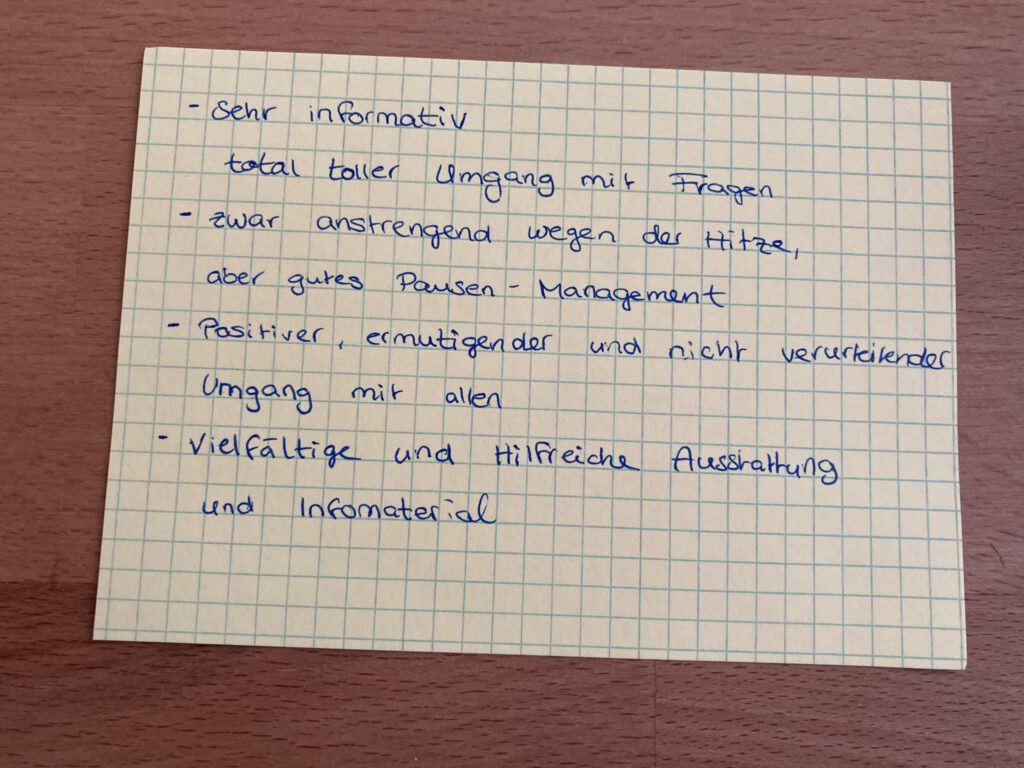 - Sehr informativ
total toller Umgang mit Fragen
- zwar anstrengend wegen der Hitze,
aber gutes Pausen-Management
- Positiver, ermutigender und nicht verurteilender
Umgang mit allen
- Vielfältige und Hilfreiche Ausstattung
und Infomaterial